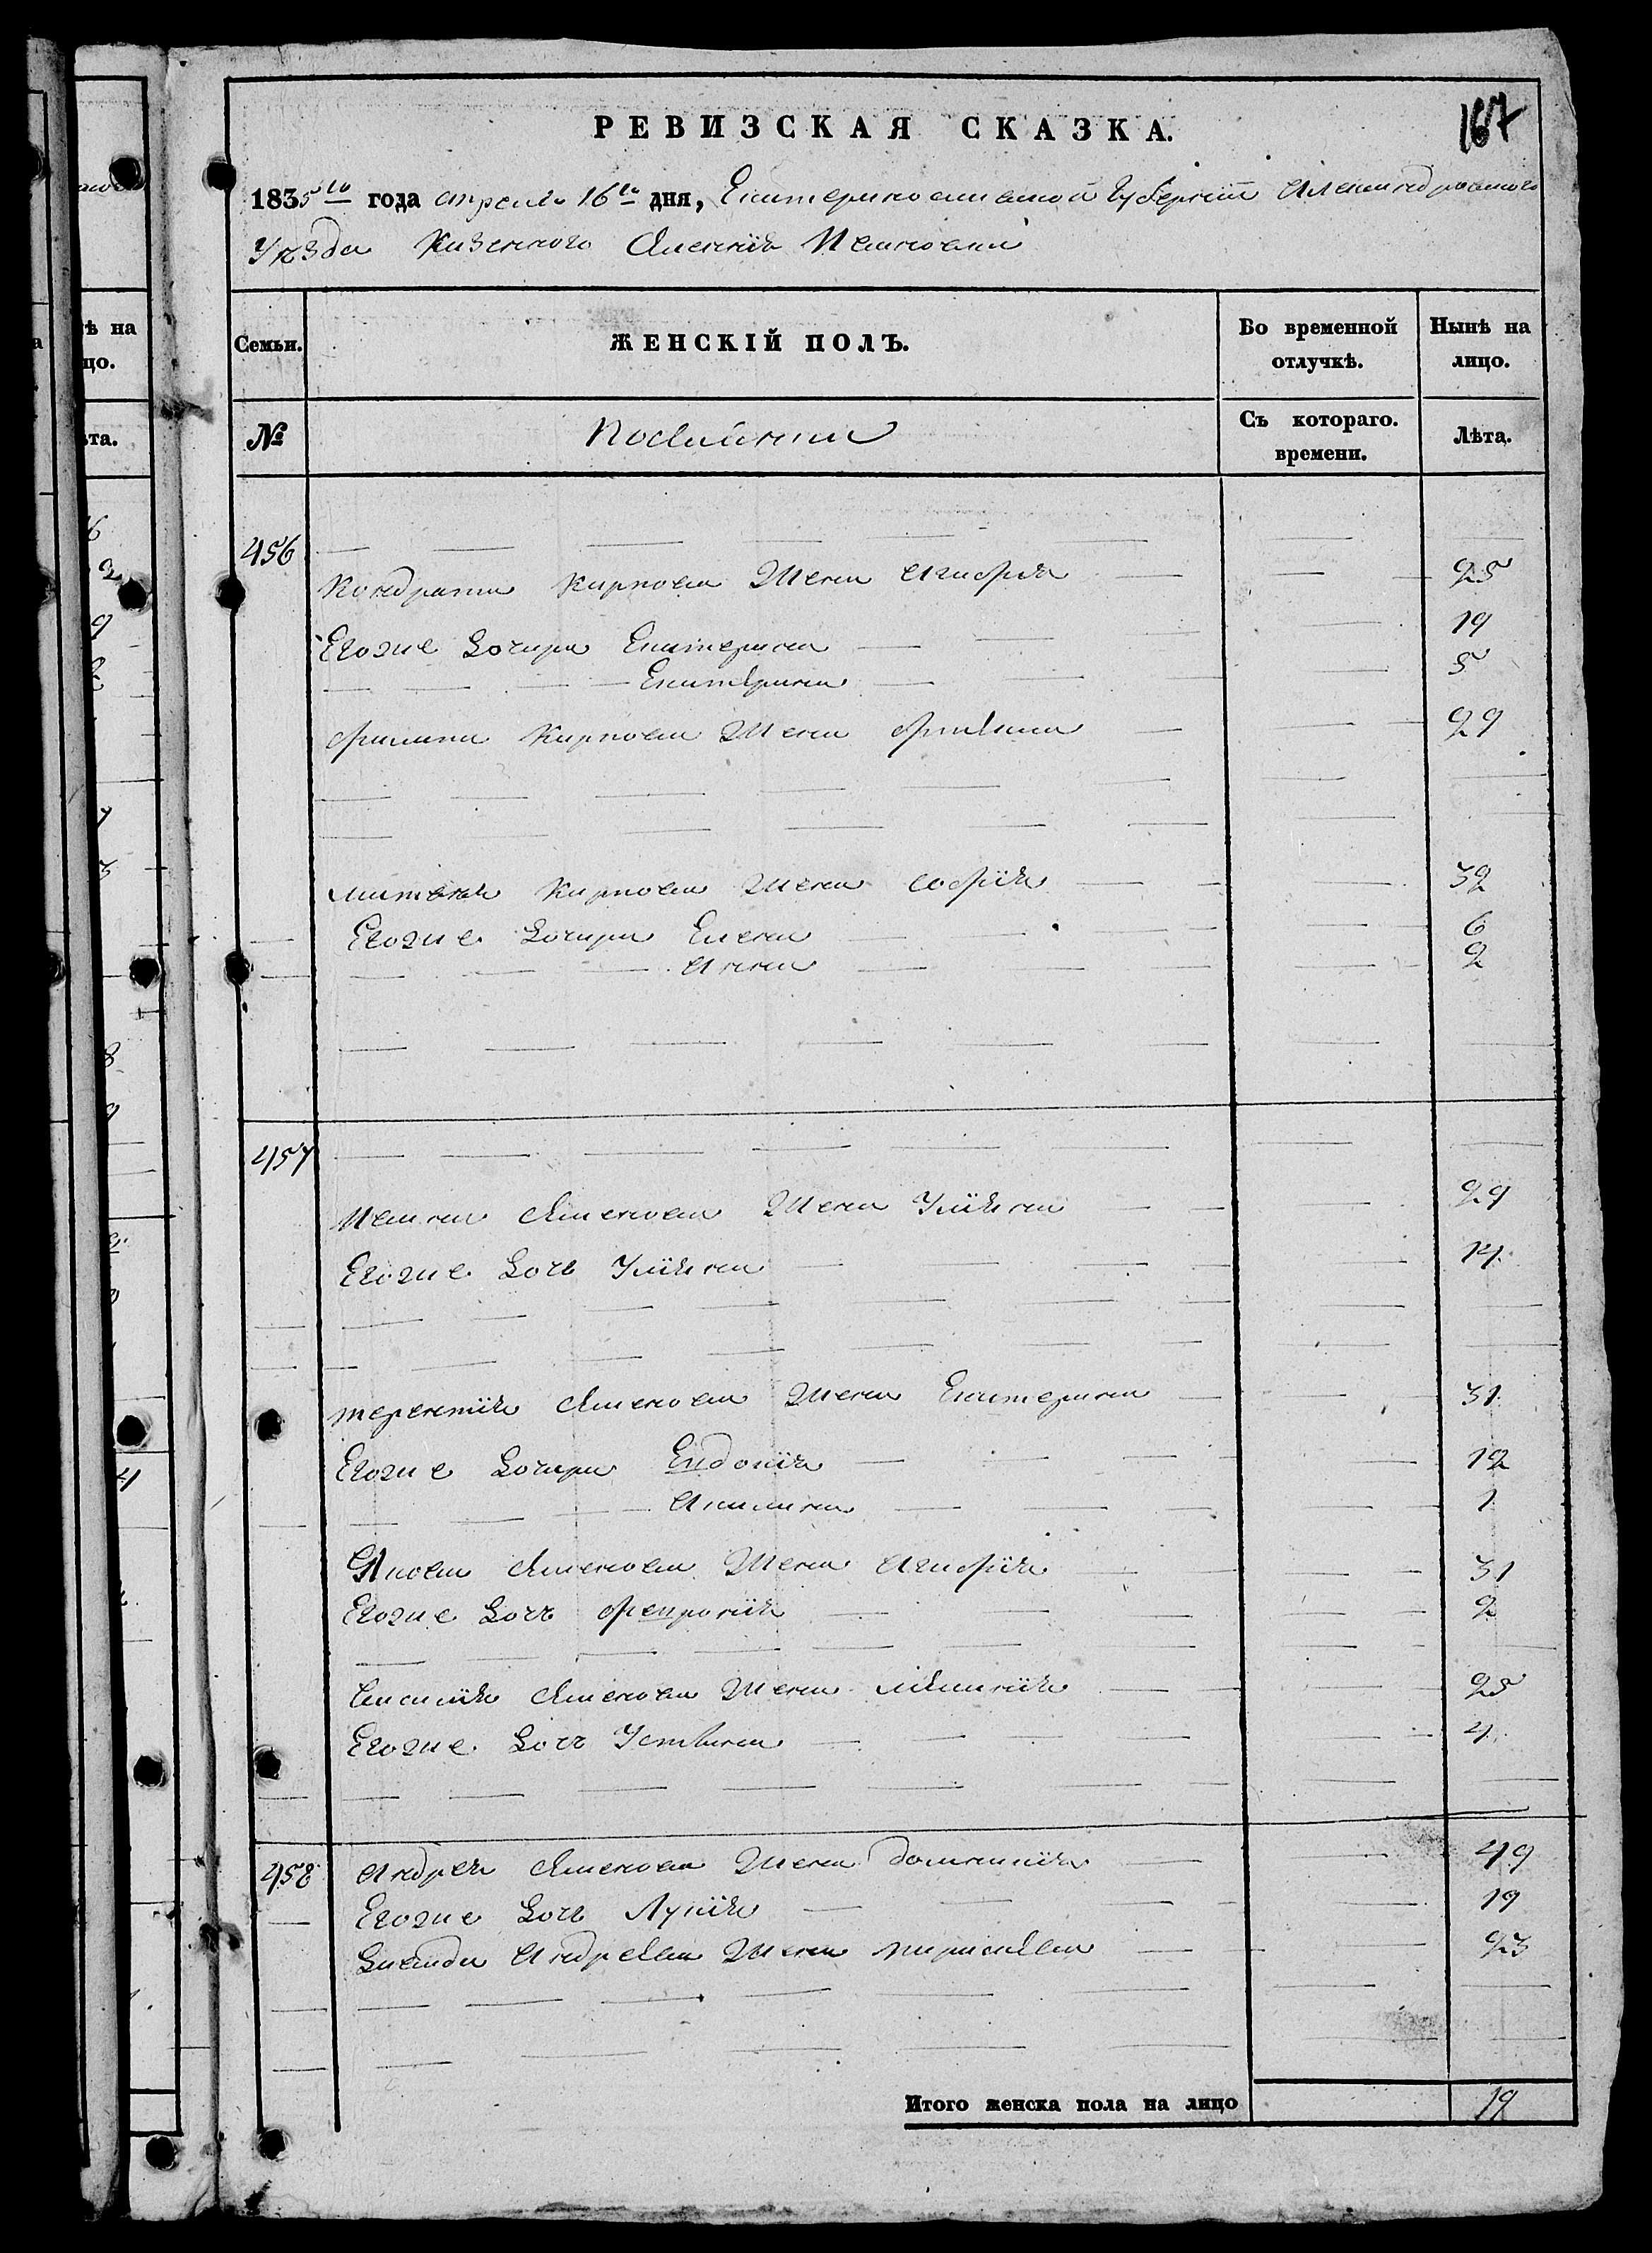 167
РЕВИЗСКАЯ СКАЗКА.
1835го года апреля 16го дня, Екатеринославской Губернiи Александровского
Уѣзда Казенного Селенiя Ивановки
Семьи.
ЖЕНСКIЙ ПОЛЪ.
Во временной отлучкѣ.
Нынѣ на лицо.
№
Поселяни
Съ котораго. времени.
Лѣта.
456
Кондрата Карпова Жена Агафiя 25
Егоже Дочери Екатерина 19
Екатерина 5
Филипа Карпова Жена 29
Матвея Карпова Жена Софiя 32
Егоже Дочери Елена 6
Анна 2
457
Ивана Семенова Жена Улiяна 29
Егоже Дочь Улiяна 14
Терентiя Семенова Жена Екатерина 31
Егоже Дочери Евдокiя 12
Акилина 1
Якова Семенова Жена Агафiя 31
Егоже Дочь Февронiя 2
Василiя Семенова Жена 25
Егоже Дочь Устина 4
458
Андрея Семенова Жена Домникiя 49
Егоже Дочь Лукiя 19
Давида Андреева Жена Параскева 23
Итого женска пола на лицо 19
ѣ на
цо.
ѣта.